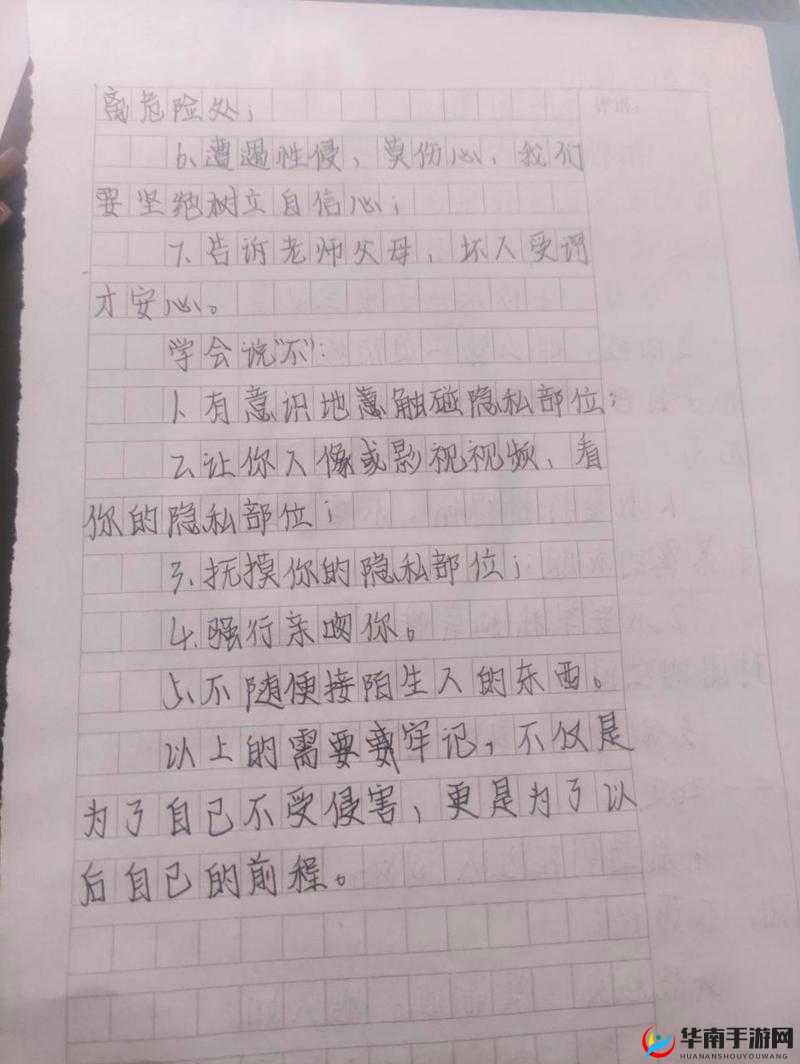 离危险处；
6.遭遇性侵，莫伤心，我们
要坚强树立自信心；
7.告诉老师父母，坏人受罚
才安心。
学会说“不”：
1.有意识地触碰隐私部位；
2.让你人像或影视视频，看
你的隐私部位；
3.抚摸你的隐私部位；
4.强行亲吻你。
5.不随便接陌生人的东西。
以上的需要我牢记，不仅是
为了自己不受侵害，更是为了以
后自己的前程。
华南手游网
HUANANSHOUYOUWANG